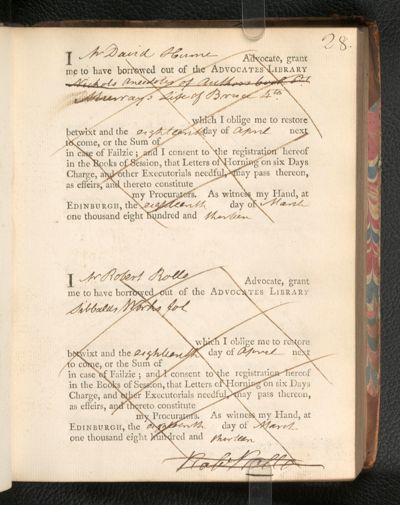 28.
I Mr David Hume Advocate, grant
me to have borrowed out of the ADVOCATES LIBRARY
Nichols Anecdotes of Authors
Murray's Life of Bruce 4to
which I oblige me to restore
betwixt and the eighteenth day of April next
to come, or the Sum of
in case of Failzie; and I consent to the registration hereof
in the Books of Session, that Letters of Horning on six Days
Charge, and other Executorials needful, may pass thereon,
as effeirs, and thereto constitute
my Procurators. As witness my Hand, at
EDINBURGH, the eighteenth day of March
one thousand eight hundred and thirteen
I Mr Robert Rolls Advocate, grant
me to have borrowed out of the ADVOCATES LIBRARY
Sibbalds Works fol
which I oblige me to restore
betwixt and the eighteenth day of April next
to come, or the Sum of
in case of Failzie; and I consent to the registration hereof
in the Books of Session, that Letters of Horning on six Days
Charge, and other Executorials needful, may pass thereon,
as effeirs, and thereto constitute
my Procurators. As witness my Hand, at
EDINBURGH, the eighteenth day of March
one thousand eight hundred and thirteen